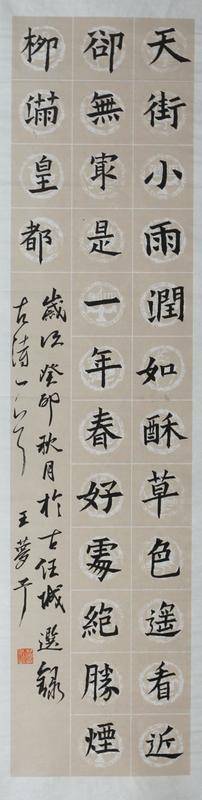 天街小雨潤如酥草色遙看近
卻無㝡是一年春好處絕勝煙
柳滿皇都
歲次癸卯秋月於古任城選錄
古詩一首 王夢